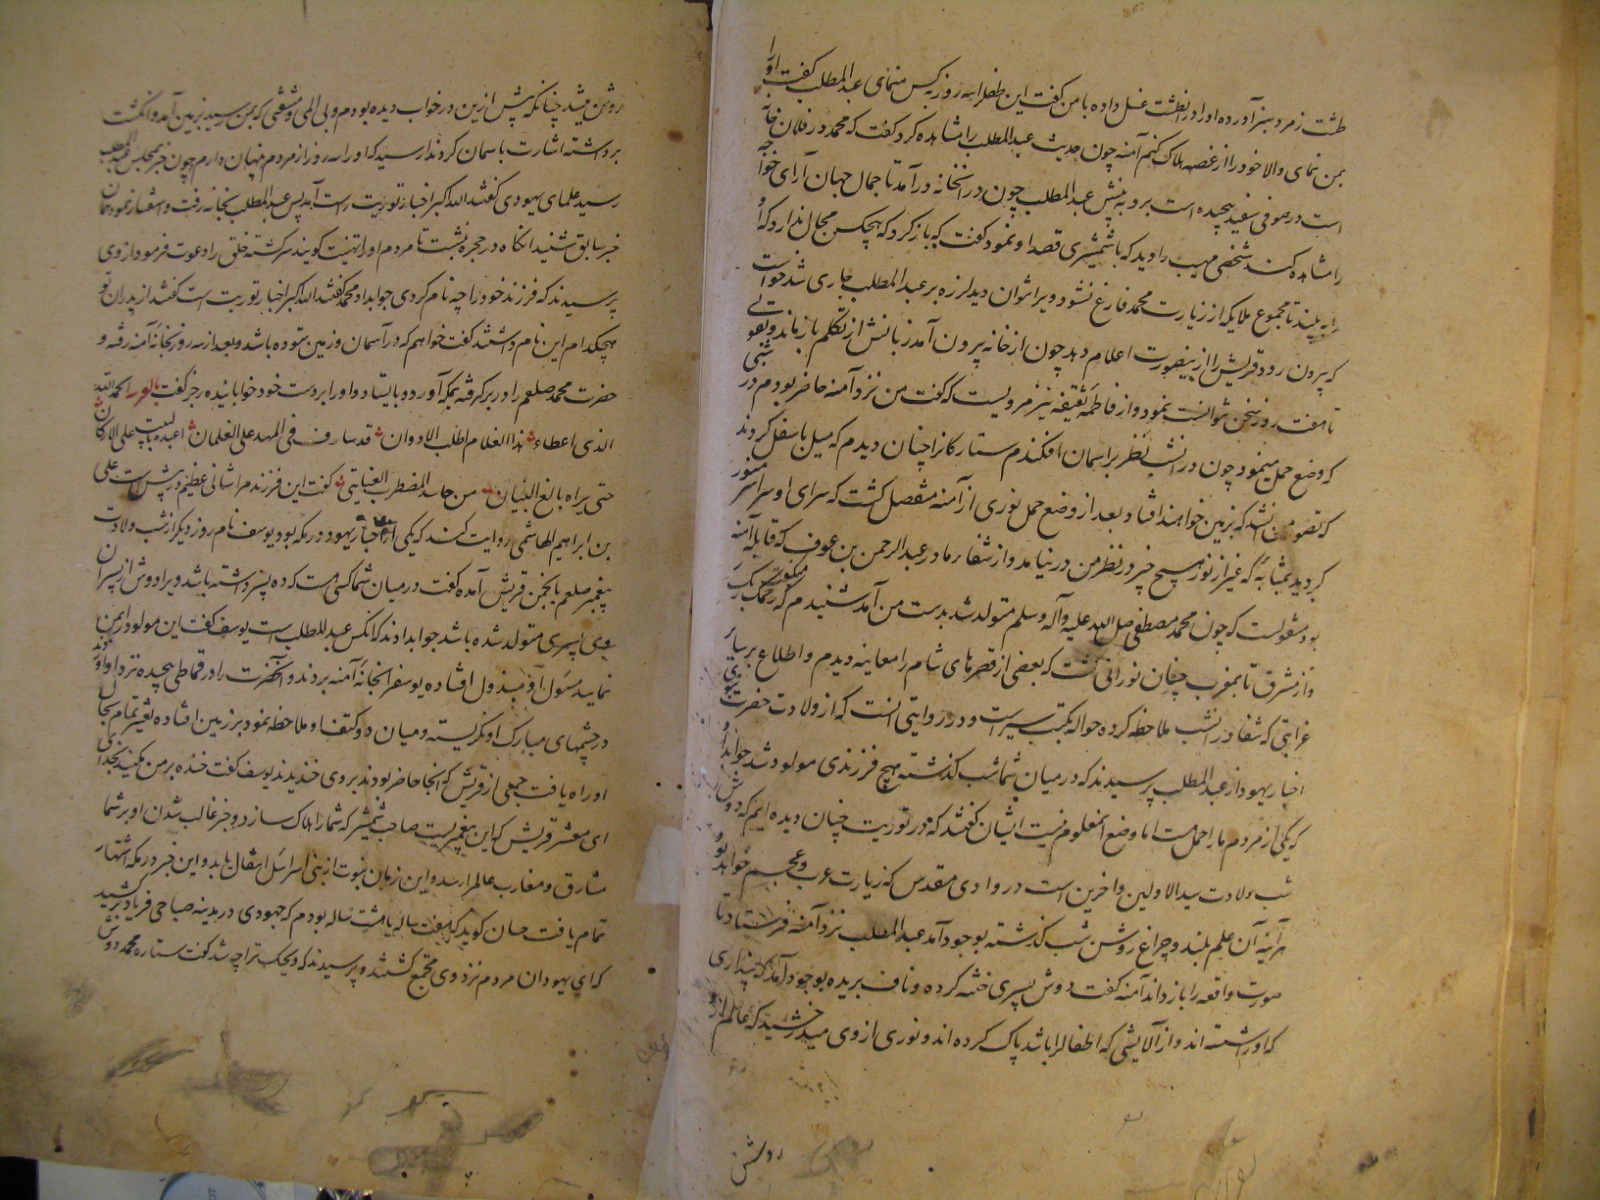 طشت زمرد سبز آورده او را در ان طشت غسل داده با من گفت این طفل را سه روز بکس منمای عبدالمطلب گفت او را
بمن نمای والا خود را از غصه هلاک کنم آمنه چون جدیت عبدالمطلب را مشاهده کرد گفت که محمد در فلان خانه
است در صوفی سفید پیچیده است برو ببین عبدالمطلب چون در انخانه درآمد تا جمال جهان آرای خواجه
را مشاهده کند شخصی مهیب را دید که با شمشیری قصد او نمود گفت که باز گرد که هیچکس مجال ندارد که او
را ببیند تا مجموع ملایکه از زیارت محمد فارغ نشود ویرا نتوان دید لرزه بر عبدالمطلب جاری شد خواست
که بیرون رود قریش را ازین صورت اعلام دهد چون از خانه بیرون آمد زبانش از تکلم باز ماند و بقولی
تا هفت روز سخن نتوانست نمود و از فاطمه ثقیفه نیز مرویست که گفت من نزد آمنه حاضر بودم در شبی
که وضع حمل مینمود چون در انشب نظر بر اسمان افکندم ستارگانرا چنان دیدم که میل باسفل کردند
که تصور من شد که بزمین خواهند افتاد و بعد از وضع حمل نوری از آمنه منفصل گشت که سرای او سراسر منور
گردید بمثابه که غیر از نور هیچ چیز در نظر من در نیامد و از شفاء مادر عبدالرحمن بن عوف که قابله آمنه
بود منقولست که چون محمد مصطفی صلی الله علیه و آله و سلم متولد شد بدست من آمد شنیدم که میگفت رحمک ربک
و از مشرق تا بمغرب چنان نورانی گشت که بعضی از قصرهای شام را معاینه دیدم و اطلاع بر سایر
غرایبی که شفا در انشب ملاحظه کرده حواله بکتب سیراست و در روایتی انست که از ولادت حضرت نبوی
اخبار یهود از عبدالمطلب پرسیدند که در میان شما شب گذشته هیچ فرزندی مولود شد جواب داد
که یکی از مردم ما را حمل هست اما وضع ان معلوم نیست ایشان گفتند که در توریت چنان دیده ایم که دوش
شب ولادت سید الاولین و اخرین است در وادی مقدس که زیارت عرب و عجم خواهد بود
هر آینه آن علم بلند و چراغ روشن شب گذشته بوجود آمد عبدالمطلب نزد آمنه فرستاد تا
صورت واقعه را باز داند آمنه گفت دوش پسری ختنه کرده و ناف بریده بوجود آمد که پنداری
که او را شسته اند و از آلایشی که اطفال را باشد پاک کرده اند و نوری از وی میدرخشید که عالم از و
روشن
روشن میشد چنانکه پیش ازین در خواب دیده بودم و بی المی و مشقتی که بمن رسید بزمین آمد و انگشت
برداشته اشارت باسمان کرد ندا رسید که او را سه روز از مردم پنهان دارم چون خبر بمجلس عبدالمطلب
رسید علمای یهودی گفتند الله اکبر اخبار توریت راست آمد پس عبدالمطلب بخانه رفت و استفسار نمود همان
خبر سابق شنید انگاه در حجره نشست تا مردم او را تهنیت گویند سرگشته خلق را دعوت فرمود از وی
پرسیدند که فرزند خود را چه نام کردی جواب داد محمد گفتند الله اکبر اخبار توریت است گفتند از پدران تو
هیچکدام این نام داشتند گفت خواهم که در آسمان و زمین ستوده باشد و بعد از سه روز بخانه آمنه رفته و
حضرت محمد صلعم را در بر گرفته بمکه آورد و بایستاد و او را بر دست خود خوابانیده رجز گفت بالعربیه الحمد لله
الذی اعطاء هذا الغلام اطلب الاردان قد ساد فی المهد علی الغلمان اعیذه بالبیت علی الارکان
حتی یراه بالغ البنیان من حاسد المضطرب العنایتی گفت این فرزند مرا شانی عظیم در پیش است علی
بن ابراهیم الهاشمی روایت کند که یکی از احبار یهود در مکه بود یوسف نام روز دیگر از شب ولادت
پیغمبر صلعم بانجمن قریش آمده گفت در میان شما کسی هست که ده پسر داشته باشد و ویرا دوش از پسران
وی پسری متولد شده باشد جواب دادند که انکس عبدالمطلب است یوسف گفت این مولود را بمن
نمایید مسئول او مبذول افتاده یوسف را بخانه آمنه بردند و آنحضرت را در قماطی پیچیده نزد او آوردند
در چشمهای مبارک او نگریسته و میان دو کتف او ملاحظه نمود بر زمین افتاده تغییر تمام بحال
او راه یافت جمعی از قریش که انجا حاضر بودند بر وی خندیدند یوسف گفت خنده بر من میکنید بخدا
ای معشر قریش که این پیغمبریست صاحب شمشیر که شما را هلاک سازد و خبر غالب شدن او بر شما
مشارق و مغارب عالم رسد و این زمان نبوت از بنی اسرائیل انتقال یابد و این خبر در مکه اشتهار
تمام یافت حسان گوید که هفت ساله یا هشت ساله بودم که جهودی در مدینه صباحی فریاد برکشید
که ای یهودان مردم نزد وی مجتمع گشتند و پرسیدند که ویحک ترا چه شد گفت ستاره محمد دوش